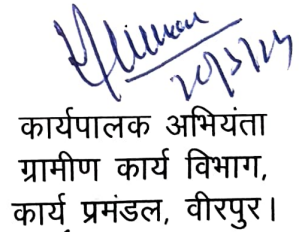 20/3/24
कार्यपालक अभियंता
ग्रामीण कार्य विभाग,
कार्य प्रमंडल, वीरपुर।